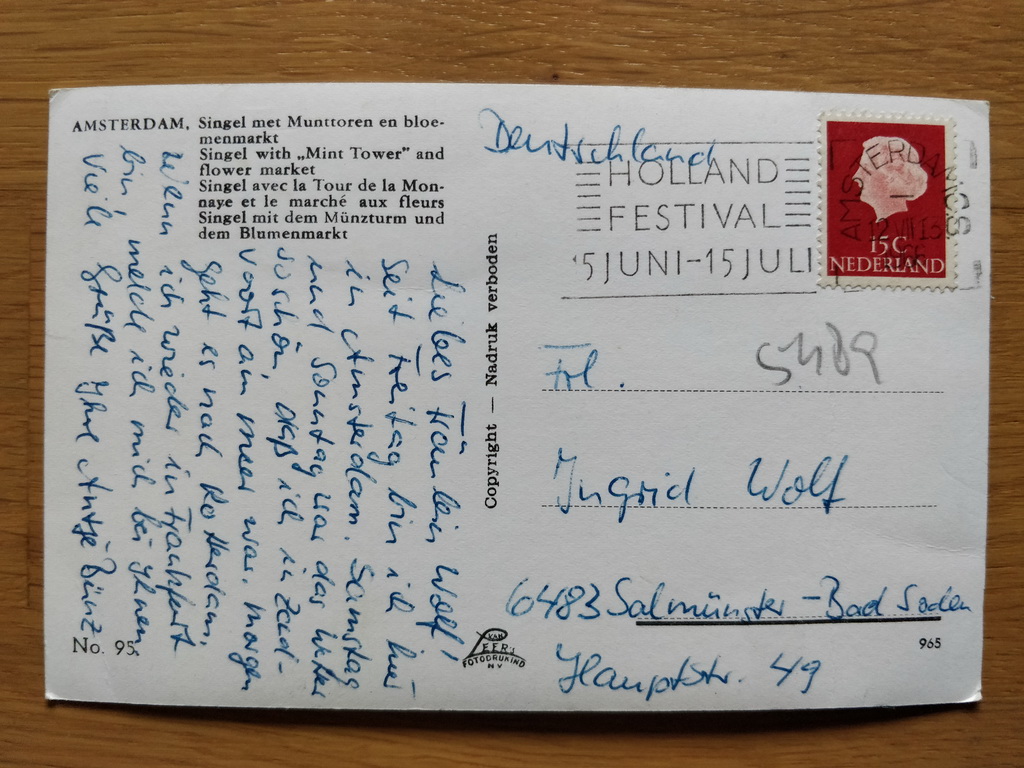 AMSTERDAM, Singel met Munttoren en bloe-
menmarkt
Singel with „Mint Tower” and
flower market
Singel avec la Tour de la Mon-
naye et le marché aux fleurs
Singel mit dem Münzturm und
dem Blumenmarkt
Liebes Fräulein Wolf,
Seit Freitag bin ich hier
in Amsterdam. Samstag
und Sonntag war das Wetter
so schön, daß ich in Zand-
voort am Meer war. Morgen
geht es nach Rotterdam.
Wenn ich wieder in Frankfurt
bin, melde ich mich bei Ihnen.
Viele Grüße Ihre Antje Bünz
No. 95
Copyright — Nadruk verboden
VAN
LEER'S
FOTODRUKIND
N V
Deutschland
HOLLAND
FESTIVAL
15 JUNI-15 JULI
AMSTERDAM CS
15 C
NEDERLAND
Frl.
Ingrid Wolf
6483 Salmünster-Bad Soden
Hauptstr. 49
965